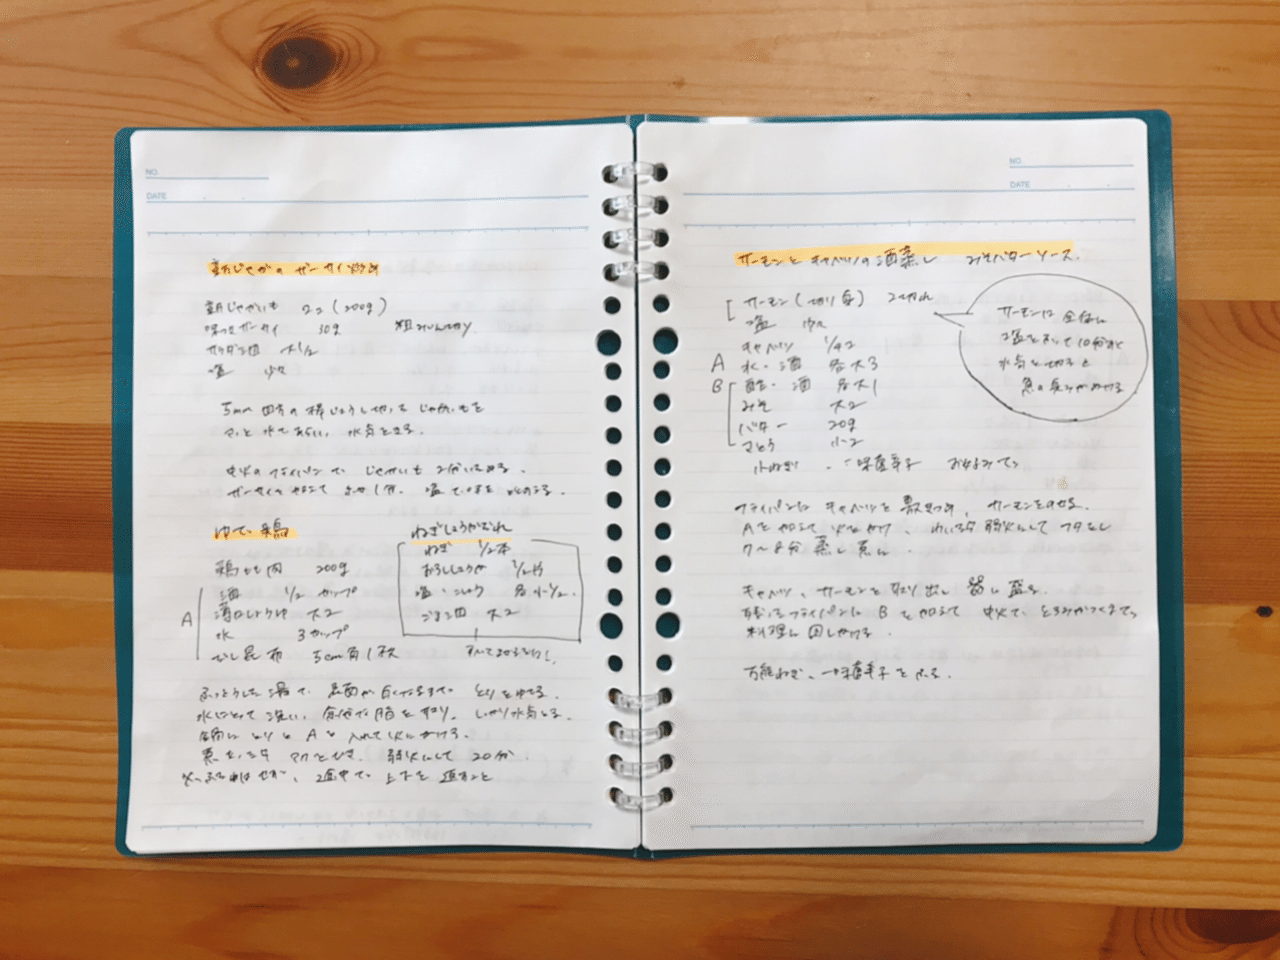 NO.
DATE
新じゃがのザーサイ炒め
新じゃがいも 2コ (200g)
味つきザーサイ 30g 粗みじん切り
サラダ油 大1/2
塩 少々
5mm 四方の棒じょうに切って じゃがいもを
さっと水であらい、水気をとる。
中火のフライパンで じゃがいも 2分いためる。
ザーサイ加えて 1分、塩で味をととのえる。
ゆで鶏
鶏もも肉 200g
A
酒 1/2カップ
薄口しょうゆ 大2
水 3カップ
だし昆布 5cm角1枚
ねぎしょうがだれ
ねぎ 1/2本
おろししょうが 1/2片
塩・こしょう 各小1/2
ごま油 大2
すべてまぜる!
ふっとうした湯で 表面が白くなるまで とりをゆでる。
水にとって洗い、余分な脂を取り、しっかり水気とる。
鍋に とりと A を入れて火にかける。
煮立ったら アクをとり、弱火にして 20分
途中で 上下を返すこと
NO.
DATE
サーモンとキャベツの酒蒸し みそバターソース
サーモン(切り身) 2切れ
塩 少々
キャベツ 1/4コ
A 水・酒 各大3
B 酢・酒 各大1
みそ 大2
バター 20g
さとう 小2
小ねぎ、一味唐辛子 お好みで
サーモンは全体に
塩をふって10分おく
水気を切ると
魚の臭みがぬける
フライパンに キャベツを敷きつめ、サーモンをのせる。
Aを加えて 火をかけ、わいたら 弱火にして フタをし
7〜8分 蒸し煮に。
キャベツ、サーモンを取り出し 器に盛る。
残ったフライパンに B を加えて 中火で、とろみがつくまで。
料理に回しかける。
万能ねぎ、一味唐辛子をふる。